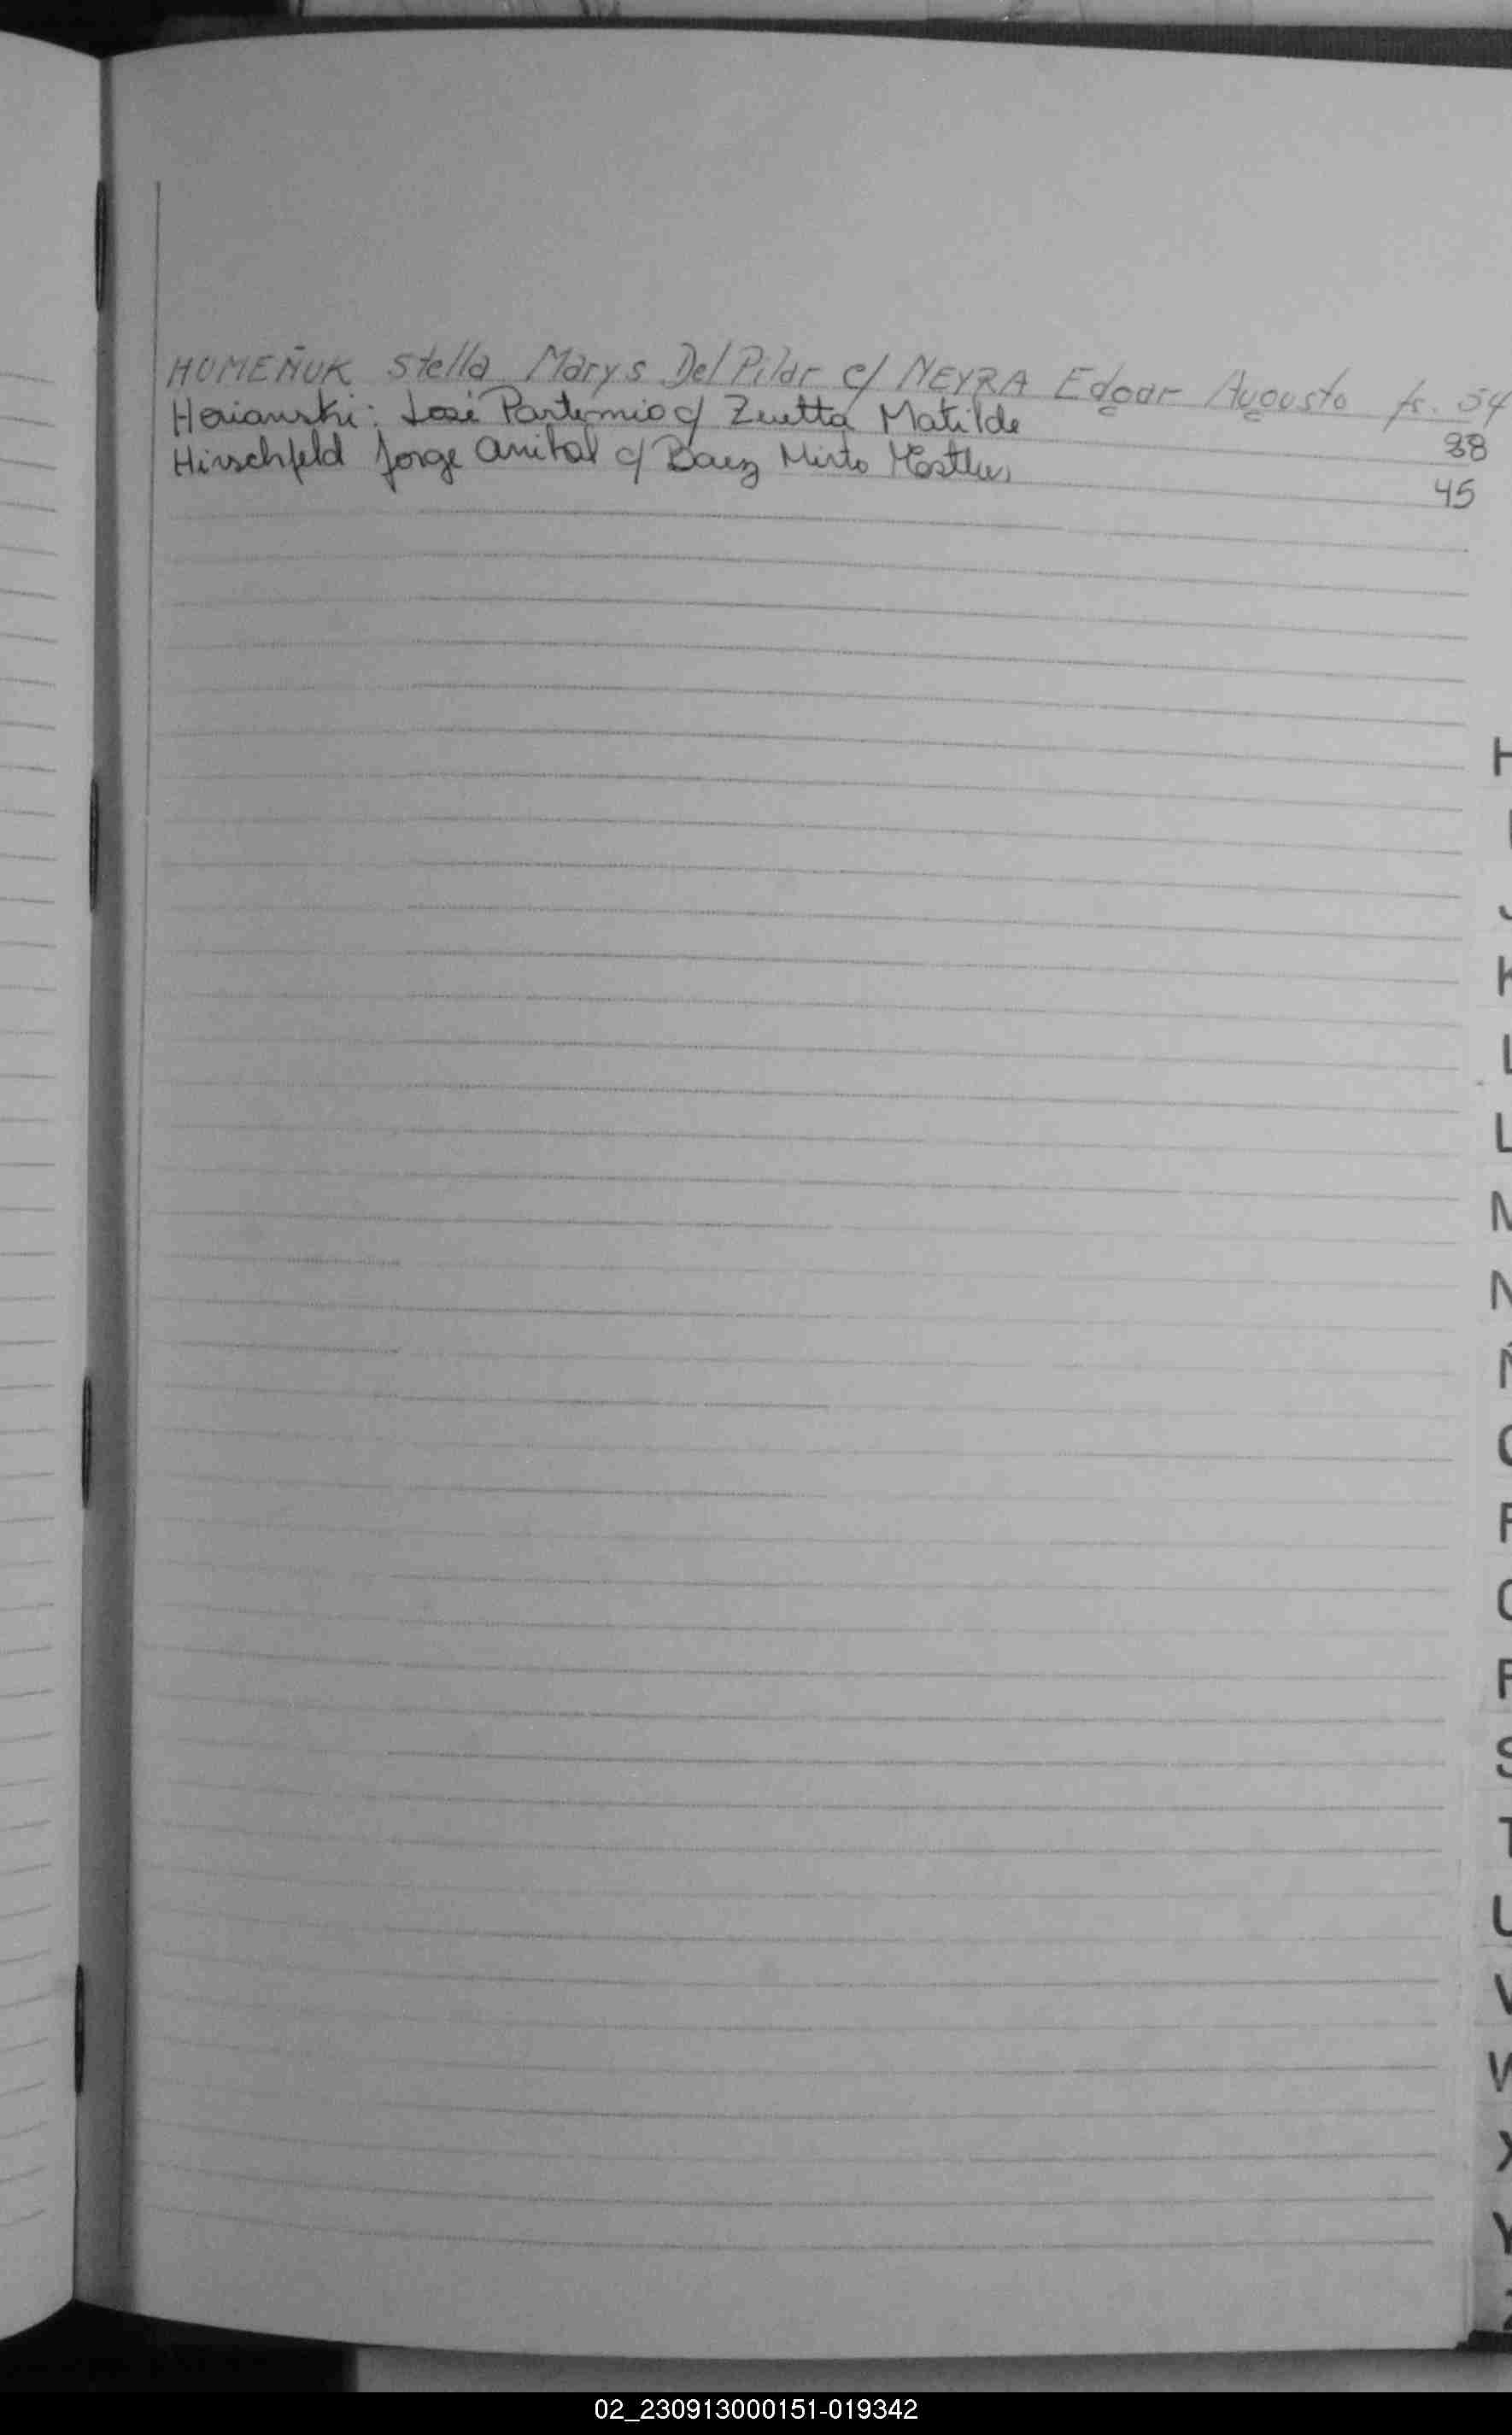 HOMEÑUK Stella Marys Del Pilar c/ NEYRA Edgar Augusto fs. 54
José Partemio c/ Zuetta Matilde 38
Hirschfeld Jorge Anibal c/ Baez Mirta 45
H
I
J
K
L
L
M
N
Ñ
O
P
Q
R
S
T
U
V
W
X
Y
Z
02_230913000151-019342